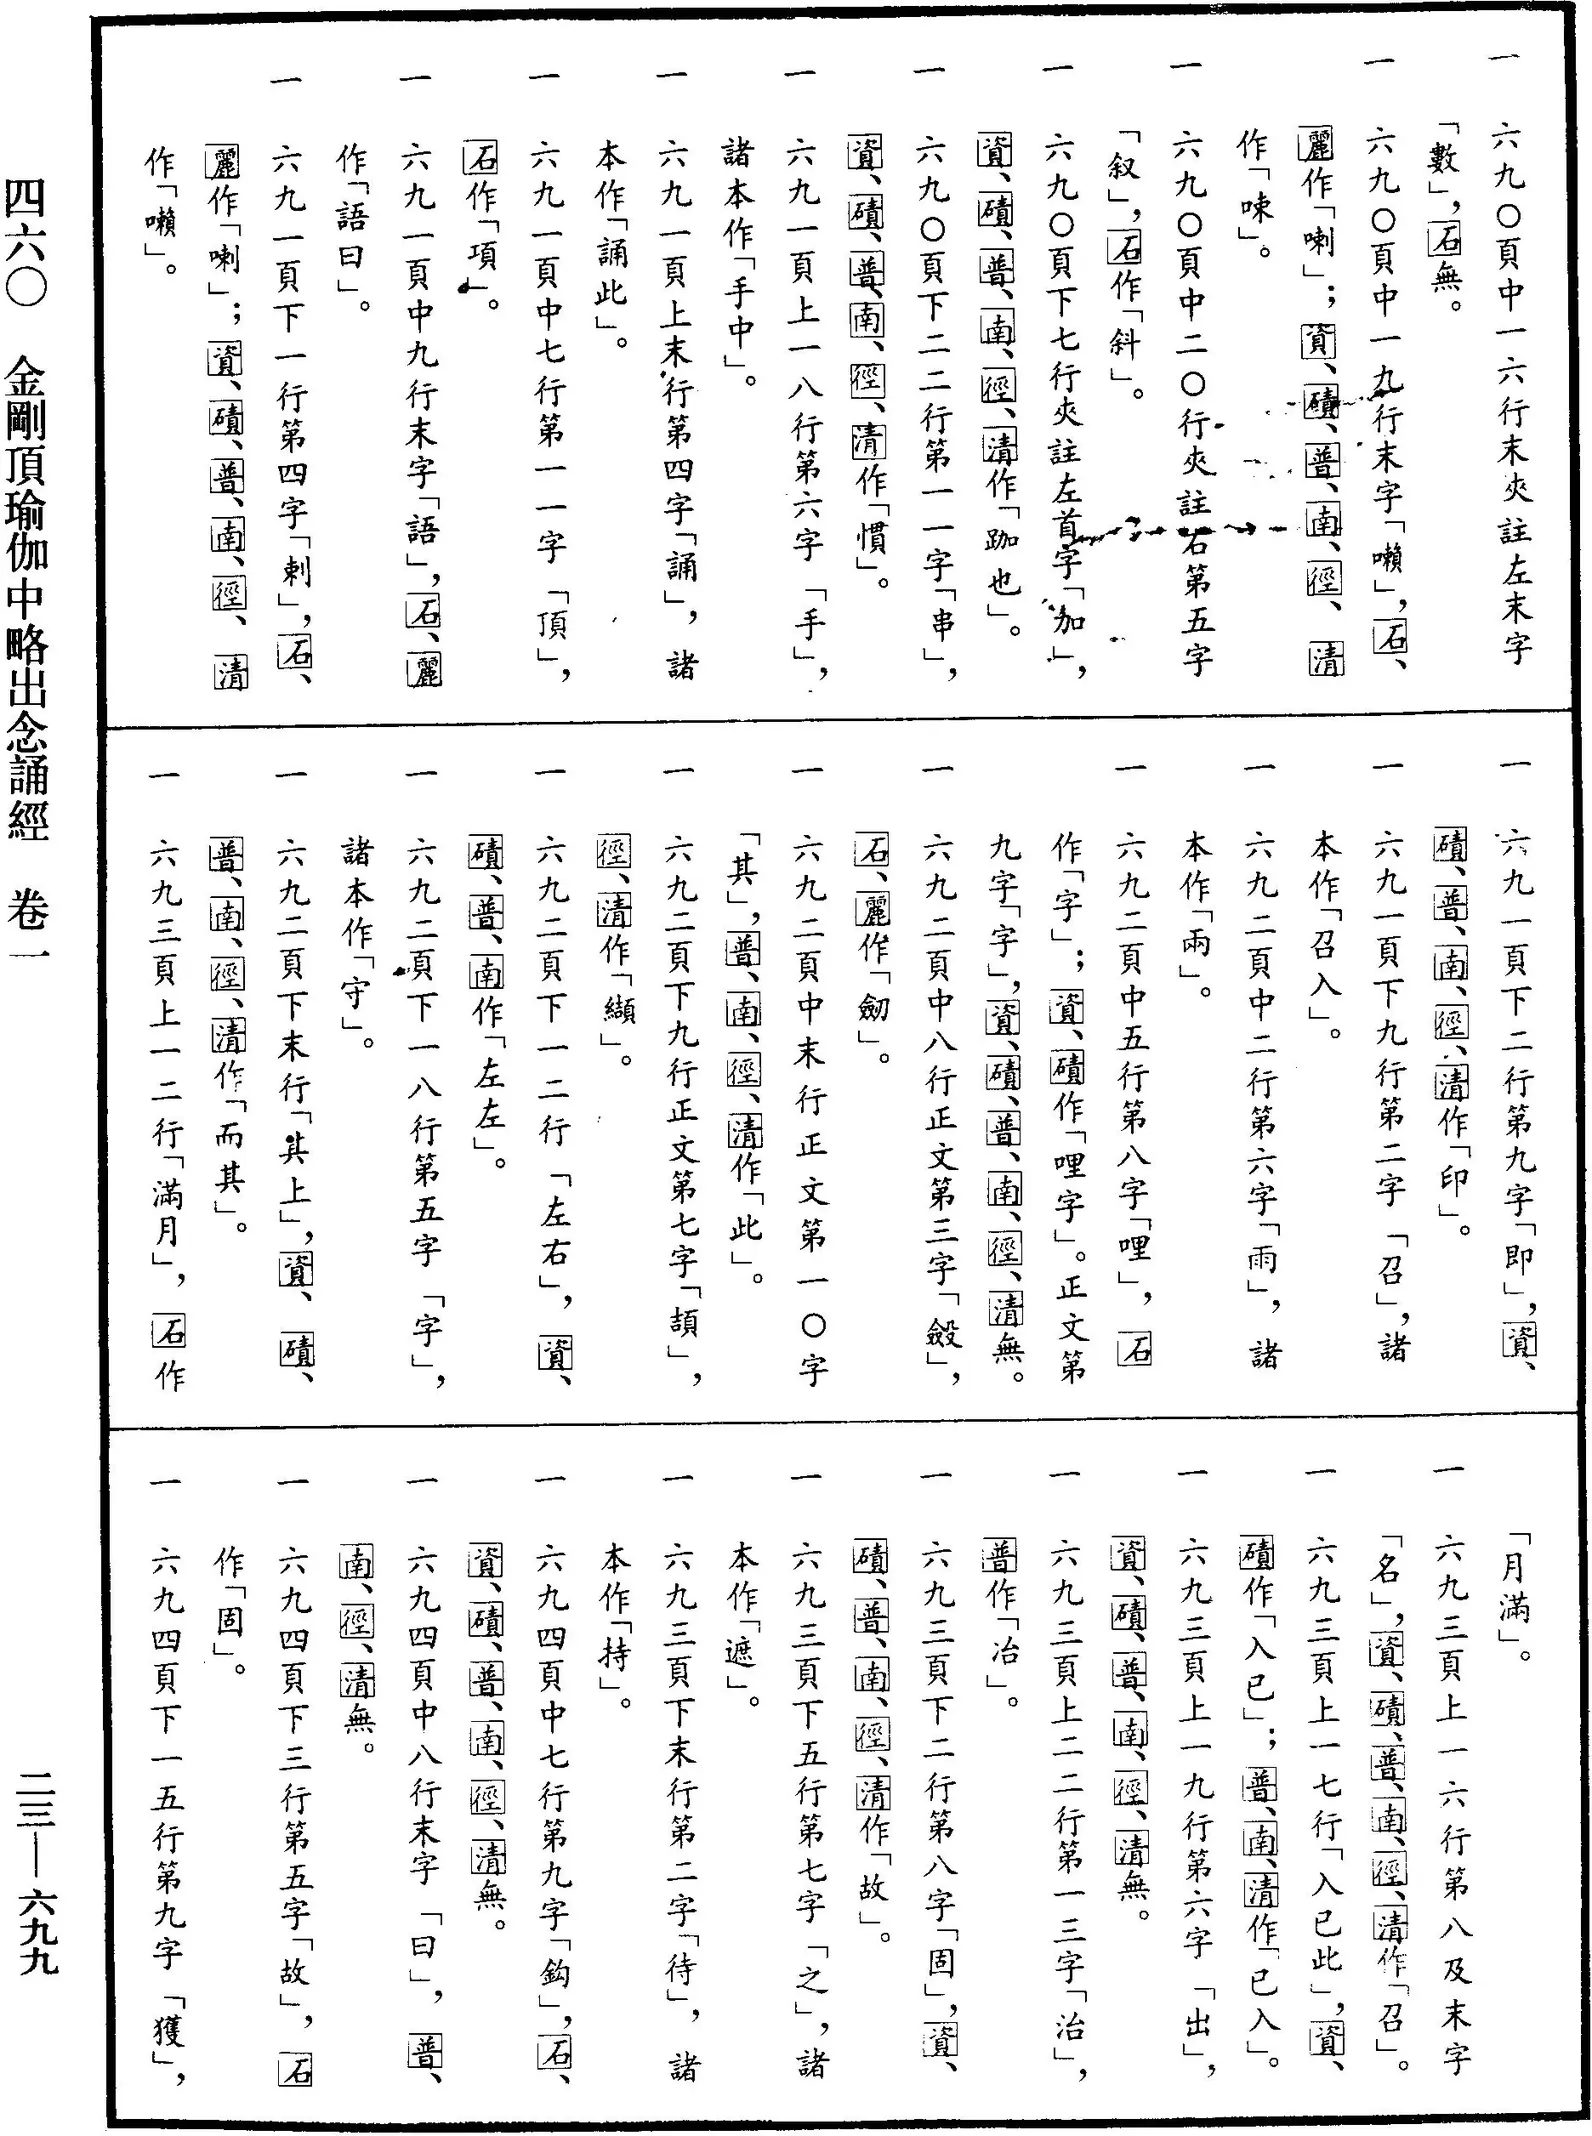 一 六九〇頁中一六行末夾註左末字
「數」，石無。
一 六九〇頁中一九行末字「嚩」，石、
麗作「喇」；資、磧、普、南、徑、清
作「㖨」。
一 六九〇頁中二〇行夾註右第五字
「叙」，石作「斜」。
一 六九〇頁下七行夾註左首字「加」，
資、磧、普、南、徑、清作「跏也」。
一 六九〇頁下二二行第一一字「串」，
資、磧、普、南、徑、清作「慣」。
一 六九一頁上一八行第六字「手」，
諸本作「手中」。
一 六九一頁上末行第四字「誦」，諸
本作「誦此」。
一 六九一頁中七行第一一字「頂」，
石作「項」。
一 六九一頁中九行末字「語」，石、麗
作「語曰」。
一 六九一頁下一行第四字「剌」，石、
麗作「喇」；資、磧、普、南、徑、清
作「嚩」。
一 六九一頁下二行第九字「即」，資、
磧、普、南、徑、清作「印」。
一 六九一頁下九行第二字「召」，諸
本作「召入」。
一 六九二頁中二行第六字「雨」，諸
本作「兩」。
一 六九二頁中五行第八字「哩」，石
作「字」；資、磧作「哩字」。正文第
九字「字」，資、磧、普、南、徑、清無。
一 六九二頁中八行正文第三字「毅」，
石、麗作「劒」。
一 六九二頁中末行正文第一〇字
「其」，普、南、徑、清作「此」。
一 六九二頁下九行正文第七字「頡」，
徑、清作「纈」。
一 六九二頁下一二行「左右」，資、
磧、普、南作「左左」。
一 六九二頁下一八行第五字「字」，
諸本作「守」。
一 六九二頁下末行「其上」，資、磧、
普、南、徑、清作「而其」。
一 六九三頁上一二行「滿月」，石作
「月滿」。
一 六九三頁上一六行第八及末字
「名」，資、磧、普、南、徑、清作「召」。
一 六九三頁上一七行「入已此」，資、
磧作「入已」；普、南、清作「已入」。
一 六九三頁上一九行第六字「出」，
資、磧、普、南、徑、清無。
一 六九三頁上二二行第一三字「治」，
普作「冶」。
一 六九三頁下二行第八字「固」，資、
磧、普、南、徑、清作「故」。
一 六九三頁下五行第七字「之」，諸
本作「遮」。
一 六九三頁下末行第二字「待」，諸
本作「持」。
一 六九四頁中七行第九字「鈎」，石、
資、磧、普、南、徑、清無。
一 六九四頁中八行末字「曰」，普、
南、徑、清無。
一 六九四頁下三行第五字「故」，石
作「固」。
一 六九四頁下一五行第九字「獲」，
四六〇 金剛頂瑜伽中略出念誦經 卷一
二三—六九九